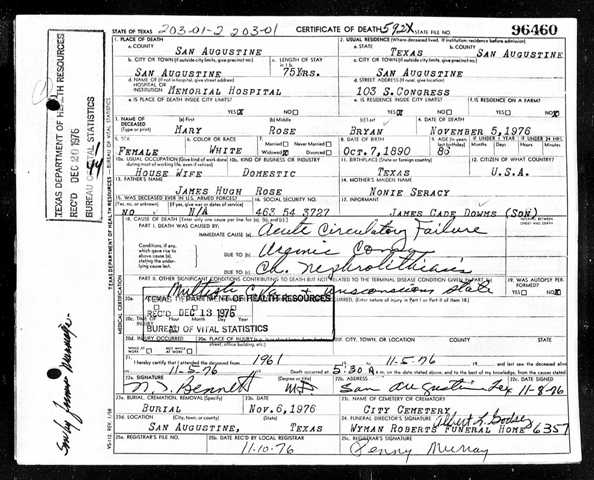 STATE OF TEXAS 203-01-2 203-01 CERTIFICATE OF DEATH 592X STATE FILE NO. 96460
1. PLACE OF DEATH 2. USUAL RESIDENCE (Where deceased lived. If institution: residence before admission)
a. COUNTY SAN AUGUSTINE a. STATE TEXAS b. COUNTY SAN AUGUSTINE
b. CITY OR TOWN (If outside city limits, give precinct no.) c. LENGTH OF STAY c. CITY OR TOWN (If outside city limits, give precinct no.)
SAN AUGUSTINE 75YRS. SAN AUGUSTINE
d. NAME OF (If not in hospital, give street address) HOSPITAL OR INSTITUTION d. STREET ADDRESS (If rural, give location)
MEMORIAL HOSPITAL 103 S.CONGRESS
e. IS PLACE OF DEATH INSIDE CITY LIMITS? YES NO e. IS RESIDENCE INSIDE CITY LIMITS? YES NO f. IS RESIDENCE ON A FARM? YES NO
3. NAME OF DECEASED (Type or print) (a) First (b) Middle (c) Last 4. DATE OF DEATH
MARY ROSE BRYAN NOVEMBER 5,1976
5. SEX 6. COLOR OR RACE 7. Married Never Married Widowed Divorced 8. DATE OF BIRTH 9. AGE IF UNDER 1 YEAR IF UNDER 24 HRS.
FEMALE WHITE OCT.7,1890 86
10a. USUAL OCCUPATION (Give kind of work done during most of working life, even if retired) 10b. KIND OF BUSINESS OR INDUSTRY 11. BIRTHPLACE (State or foreign country) 12. CITIZEN OF WHAT COUNTRY?
HOUSE WIFE DOMESTIC TEXAS U.S.A.
13. FATHER'S NAME 14. MOTHER'S MAIDEN NAME
JAMES HUGH ROSE NONIE SERACY
15. WAS DECEASED EVER IN U.S. ARMED FORCES? 16. SOCIAL SECURITY NO. 17. INFORMANT
NO N/A 463 54 3727 JAMES CADE DOWNS (SON)
18. CAUSE OF DEATH [Enter only one cause per line for (a), (b), and (c).]
PART I. DEATH WAS CAUSED BY:
IMMEDIATE CAUSE (a) Acute Circulatory Failure
Conditions, if any, which gave rise to above cause (a), stating the underlying cause last.
DUE TO (b) Uremic Coma
DUE TO (c) Ch. Nephrolithiasis
PART II. OTHER SIGNIFICANT CONDITIONS CONTRIBUTING TO DEATH BUT NOT RELATED TO THE TERMINAL DISEASE CONDITION GIVEN IN PART I(a) 19. WAS AUTOPSY PERFORMED? YES NO
Multiple CVA + unconscious state
TEXAS DEPARTMENT OF HEALTH RESOURCES
REC'D DEC 13 1976
BUREAU OF VITAL STATISTICS
20d. INJURY OCCURRED 20e. PLACE OF INJURY 20f. CITY, TOWN, OR LOCATION COUNTY STATE
21. I hereby certify that I attended the deceased from 1961 to 11-5-76, and last saw the deceased alive on
11-5-76 Death occurred at 5:30 A.m. on the date stated above, and to the best of my knowledge, from the causes stated.
22a. SIGNATURE (Degree or title) 22b. ADDRESS 22c. DATE SIGNED
Bennett M.D. San Augustine Tex 11-8-76
23a. BURIAL, CREMATION, REMOVAL (Specify) 23b. DATE 23c. NAME OF CEMETERY OR CREMATORY
BURIAL NOV.6,1976 CITY CEMETERY
23d. LOCATION (City, town, or county) (State) 24. FUNERAL DIRECTOR'S SIGNATURE Albert L. Godsey
SAN AUGUSTINE, TEXAS WYMAN ROBERTS FUNERAL HOME 6357
25a. REGISTRAR'S FILE NO. 25b. DATE REC'D BY LOCAL REGISTRAR 25c. REGISTRAR'S SIGNATURE
11-10-76 Jenny Murray
TEXAS DEPARTMENT OF HEALTH RESOURCES
REC'D DEC 20 1976
BUREAU OF VITAL STATISTICS
TEXAS DEPARTMENT OF HEALTH RESOURCES - BUREAU OF VITAL STATISTICS
MEDICAL CERTIFICATION